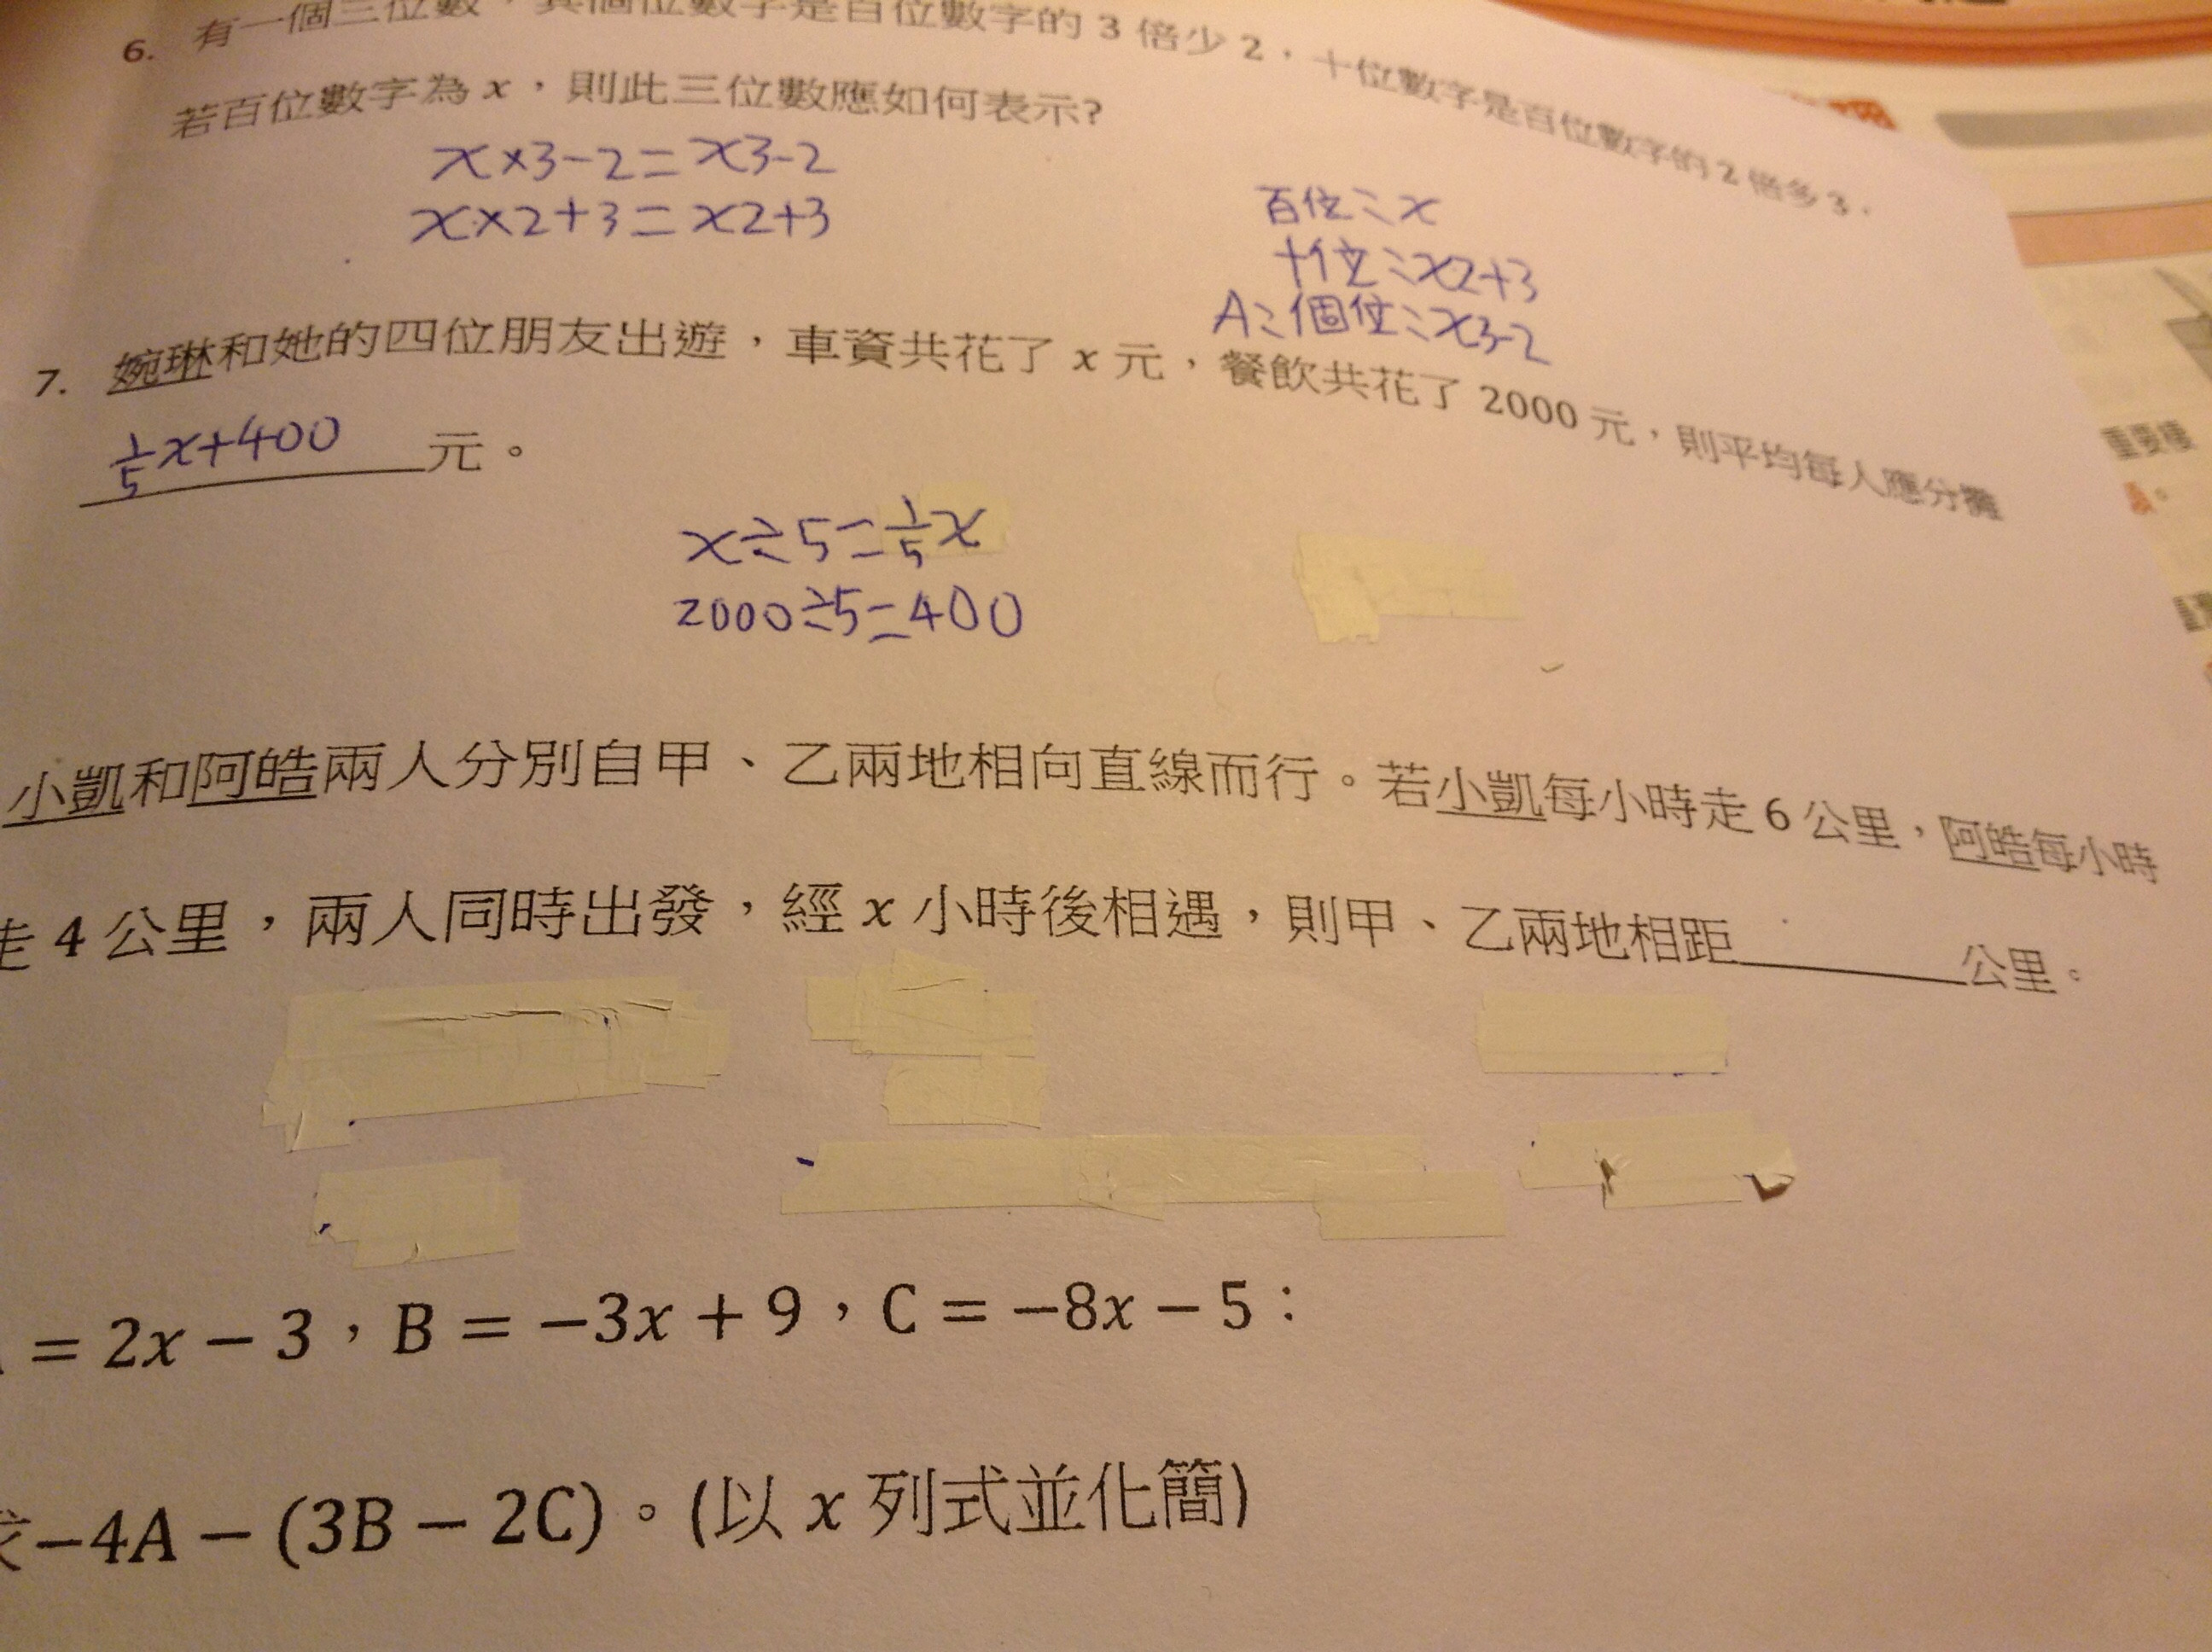 6. 有一個三位數，其個位數字是百位數字的 3 倍少 2，十位數字是百位數字的 2 倍多 3，
若百位數字為 x，則此三位數應如何表示?
x×3-2=x3-2
x×2+3=x2+3
百位=x
十位=x2+3
A=個位=x3-2
7. 婉琳和她的四位朋友出遊，車資共花了 x 元，餐飲共花了 2000 元，則平均每人應分攤
1/5x+400 元。
x÷5=1/5x
2000÷5=400
小凱和阿皓兩人分別自甲、乙兩地相向直線而行。若小凱每小時走 6 公里，阿皓每小時
走 4 公里，兩人同時出發，經 x 小時後相遇，則甲、乙兩地相距______公里。
= 2x − 3，B = −3x + 9，C = −8x − 5：
−4A − (3B − 2C)。(以 x 列式並化簡)
重要